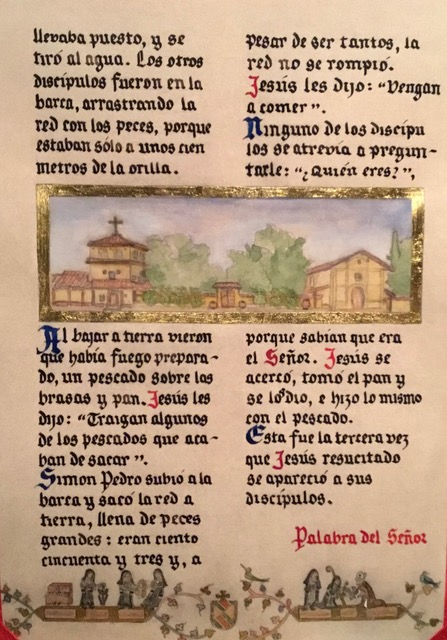 llevaba puesto, y se
tiró al agua. Los otros
discípulos fueron en la
barca, arrastrando la
red con los peces, porque
estaban sólo a unos cien
metros de la orilla.
Al bajar a tierra vieron
que había fuego prepara-
do, un pescado sobre las
brasas y pan. Jesús les
dijo: "Traigan algunos
de los pescados que aca-
ban de sacar".
Simon Pedro subió a la
barca y sacó la red a
tierra, llena de peces
grandes: eran ciento
cincuenta y tres y, a
pesar de ser tantos, la
red no se rompió.
Jesús les dijo: "Vengan
a comer".
Ninguno de los discípu
los se atrevía a pregun-
tarle: "¿Quién eres?",
porque sabían que era
el Señor. Jesús se
acercó, tomó el pan y
se los dio, e hizo lo mismo
con el pescado.
Esta fue la tercera vez
que Jesús resucitado
se apareció a sus
discípulos.
Palabra del Señor